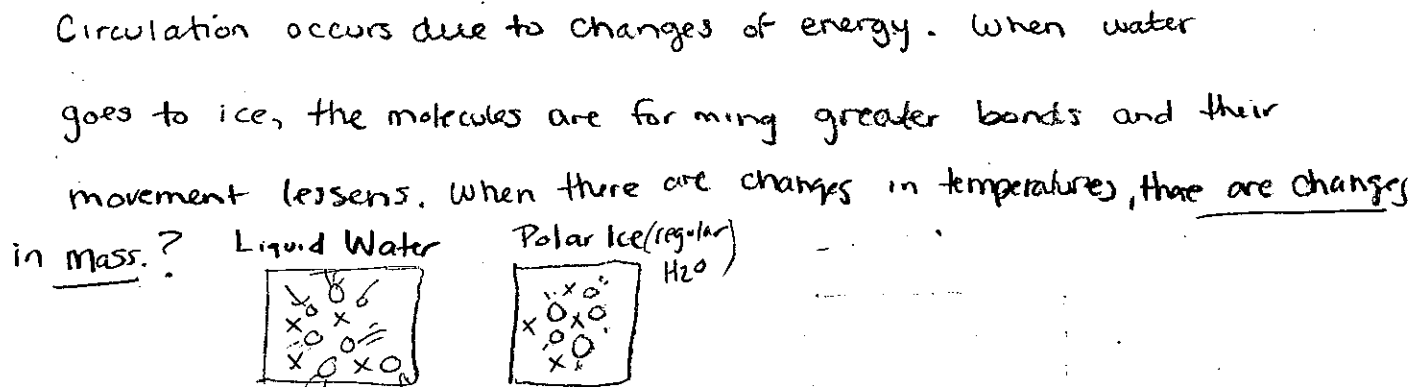 Circulation occurs due to changes of energy. When water
goes to ice, the molecules are forming greater bonds and their
movement lessens. When there are changes in temperatures, there are changes
in mass.? Liquid Water Polar Ice (regular)
H2O